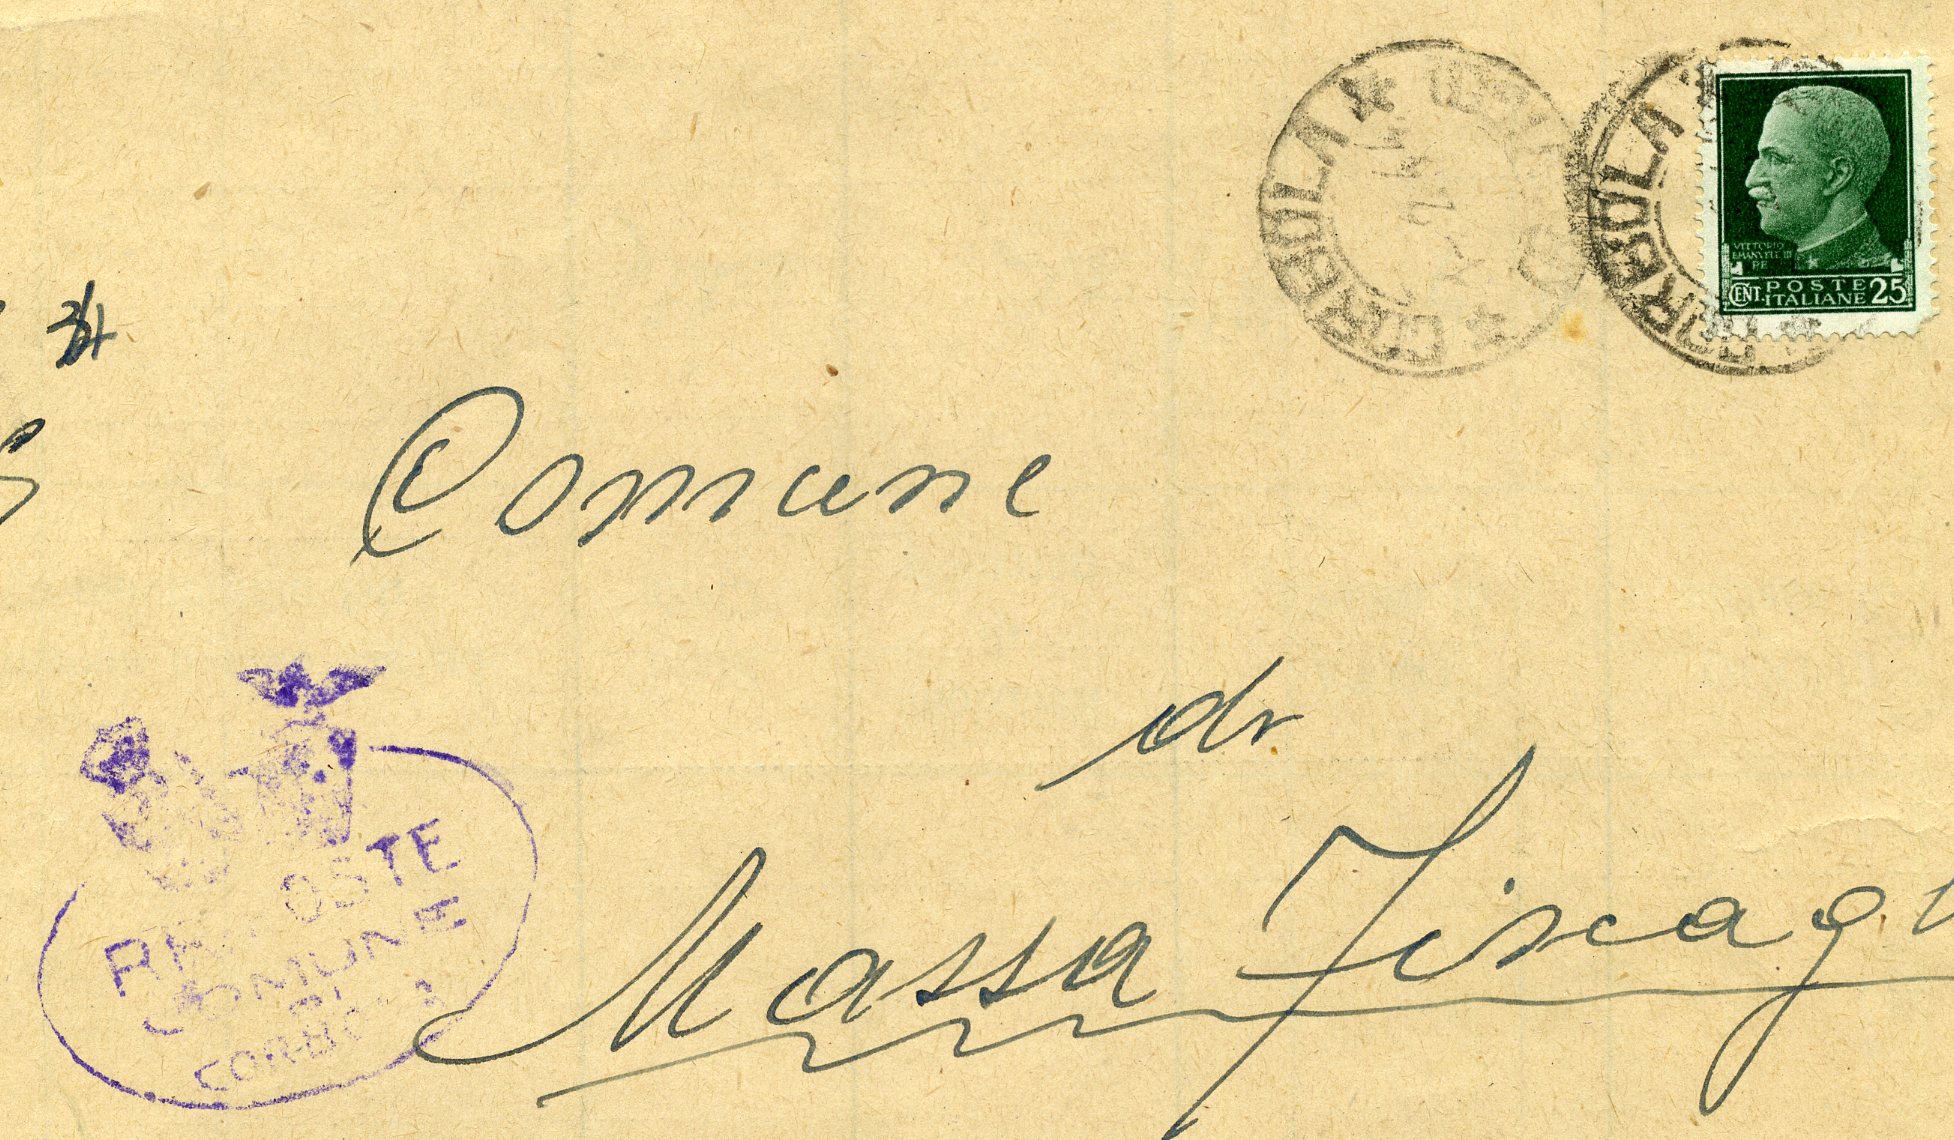 CORBOLA
CORBOLA
VITTORIO
EMANVELE III
RE
CENT. POSTE ITALIANE 25
Comune
di
Massa Fiscagl
POSTE
COMUNE
DI